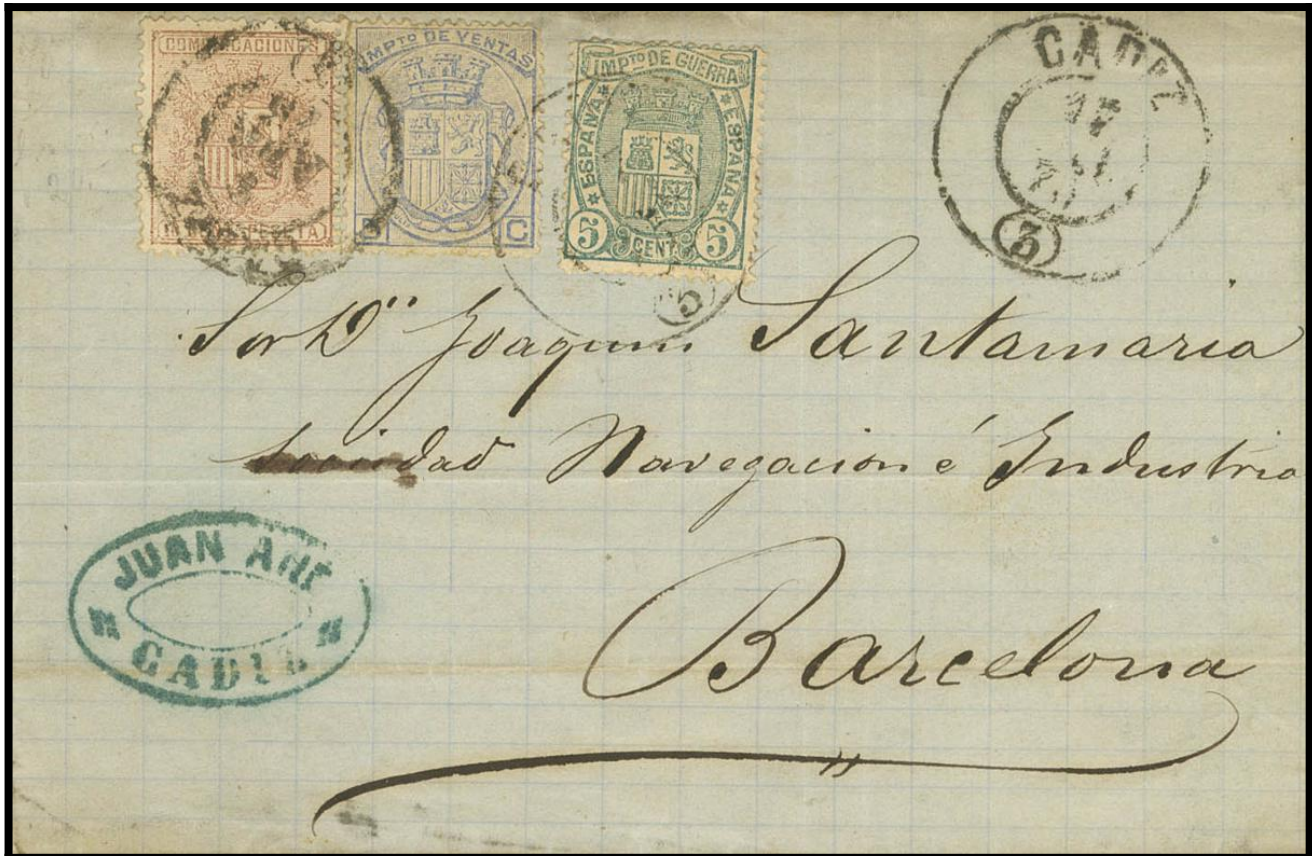 COMUNICACIONES
PESETA
IMPTO DE VENTAS
C
IMPTO DE GUERRA
ESPAÑA
ESPAÑA
5 CENT. 5
CADIZ
17
3
Sor Dn Joaquin Santamaria
Sociedad Navegacion é Industria
Barcelona
JUAN
CADIZ